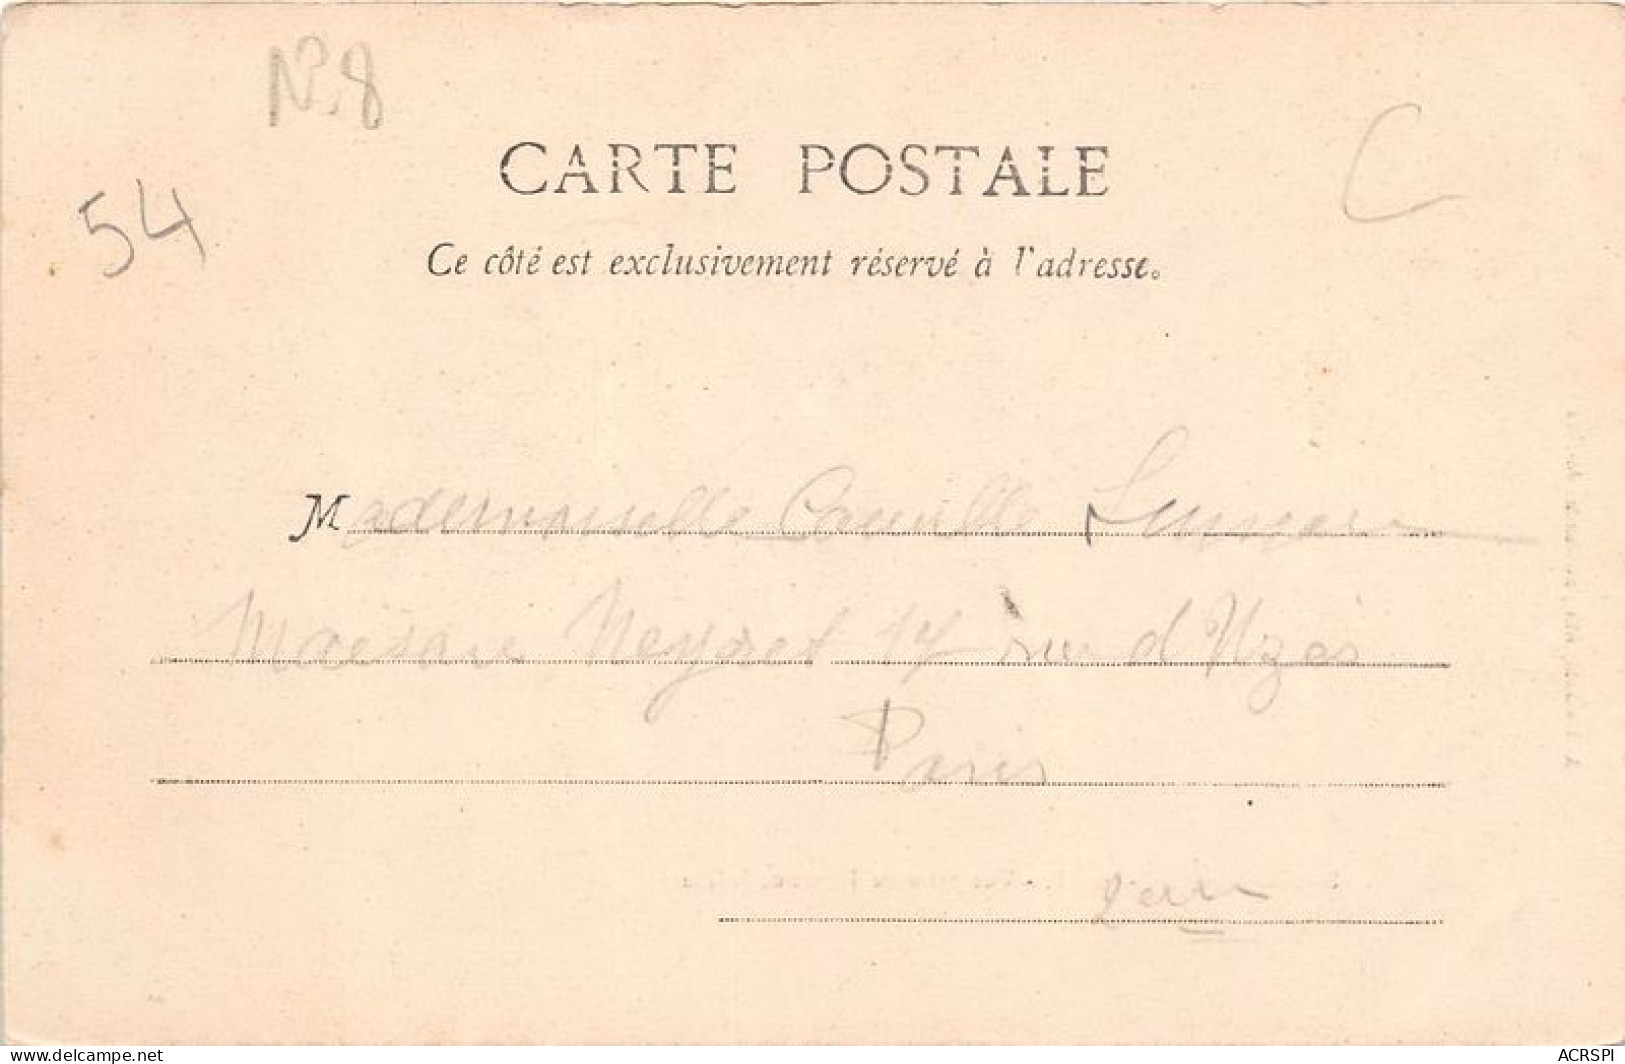 N°8
54
C
CARTE POSTALE
Ce côté est exclusivement réservé à l'adresse.
Mademoiselle Camille
Maison Neyret 17 rue d'Uzès
Paris
delcampe.net
ACRSPI